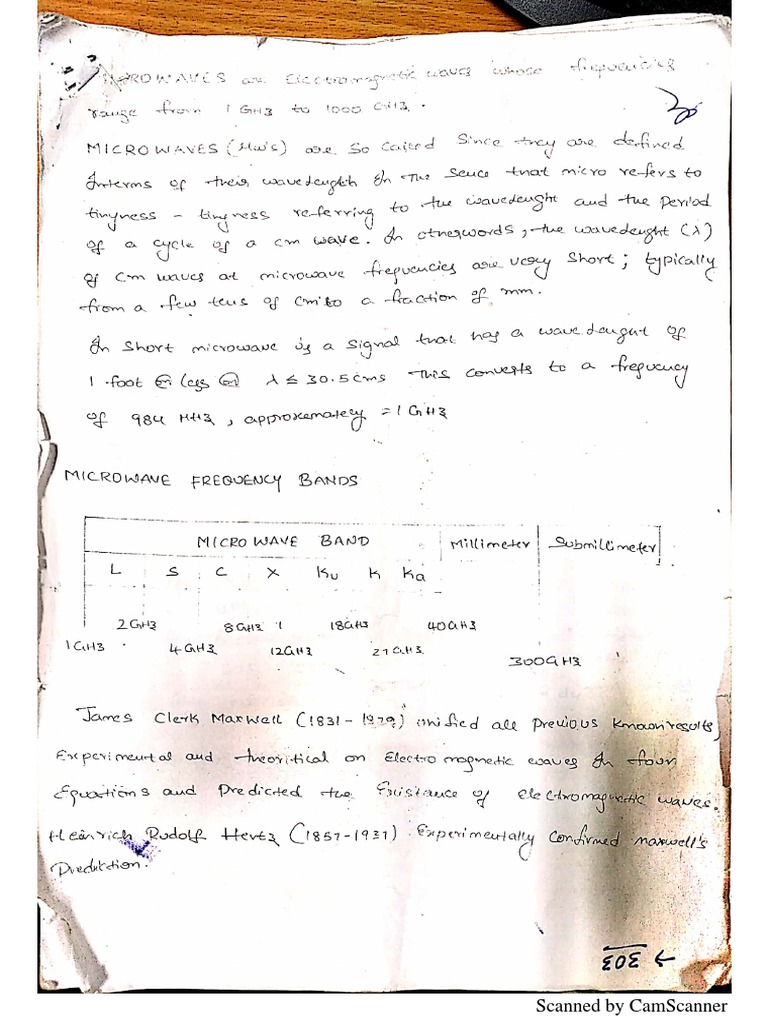 MICROWAVES are Electromagnetic waves whose frequencies
range from 1 GHz to 1000 GHz.
MICROWAVES (Mw's) are so called since they are defined
Interms of their wavelength In the sence that micro refers to
tinyness - tinyness referring to the wavelenght and the period
of a cycle of a cm wave. In otherwords, the wavelenght (λ)
of cm waves at microwave frequencies are very short; typically
from a few tens of cm to a fraction of mm.
In short microwave is a signal that has a wavelenght of
1 foot or less or λ ≤ 30.5 cms This converts to a frequency
of 984 MHz, approxemately = 1 GHz
MICROWAVE FREQUENCY BANDS
MICROWAVE BAND Millimeter Submillimeter
L S C X Ku K Ka
2GHz 8GHz 18GHz 40GHz
1GHz 4GHz 12GHz 27GHz
300GHz
James Clerk Maxwell (1831-1979) unified all previous known results,
Experimental and theoritical on Electro magnetic waves In four
Equations and Predicted the Existance of electromagnetic waves.
Heinrich Rudolf Hertz (1857-1937) Experimentally confirmed maxwell's
Prediction.
303
Scanned by CamScanner